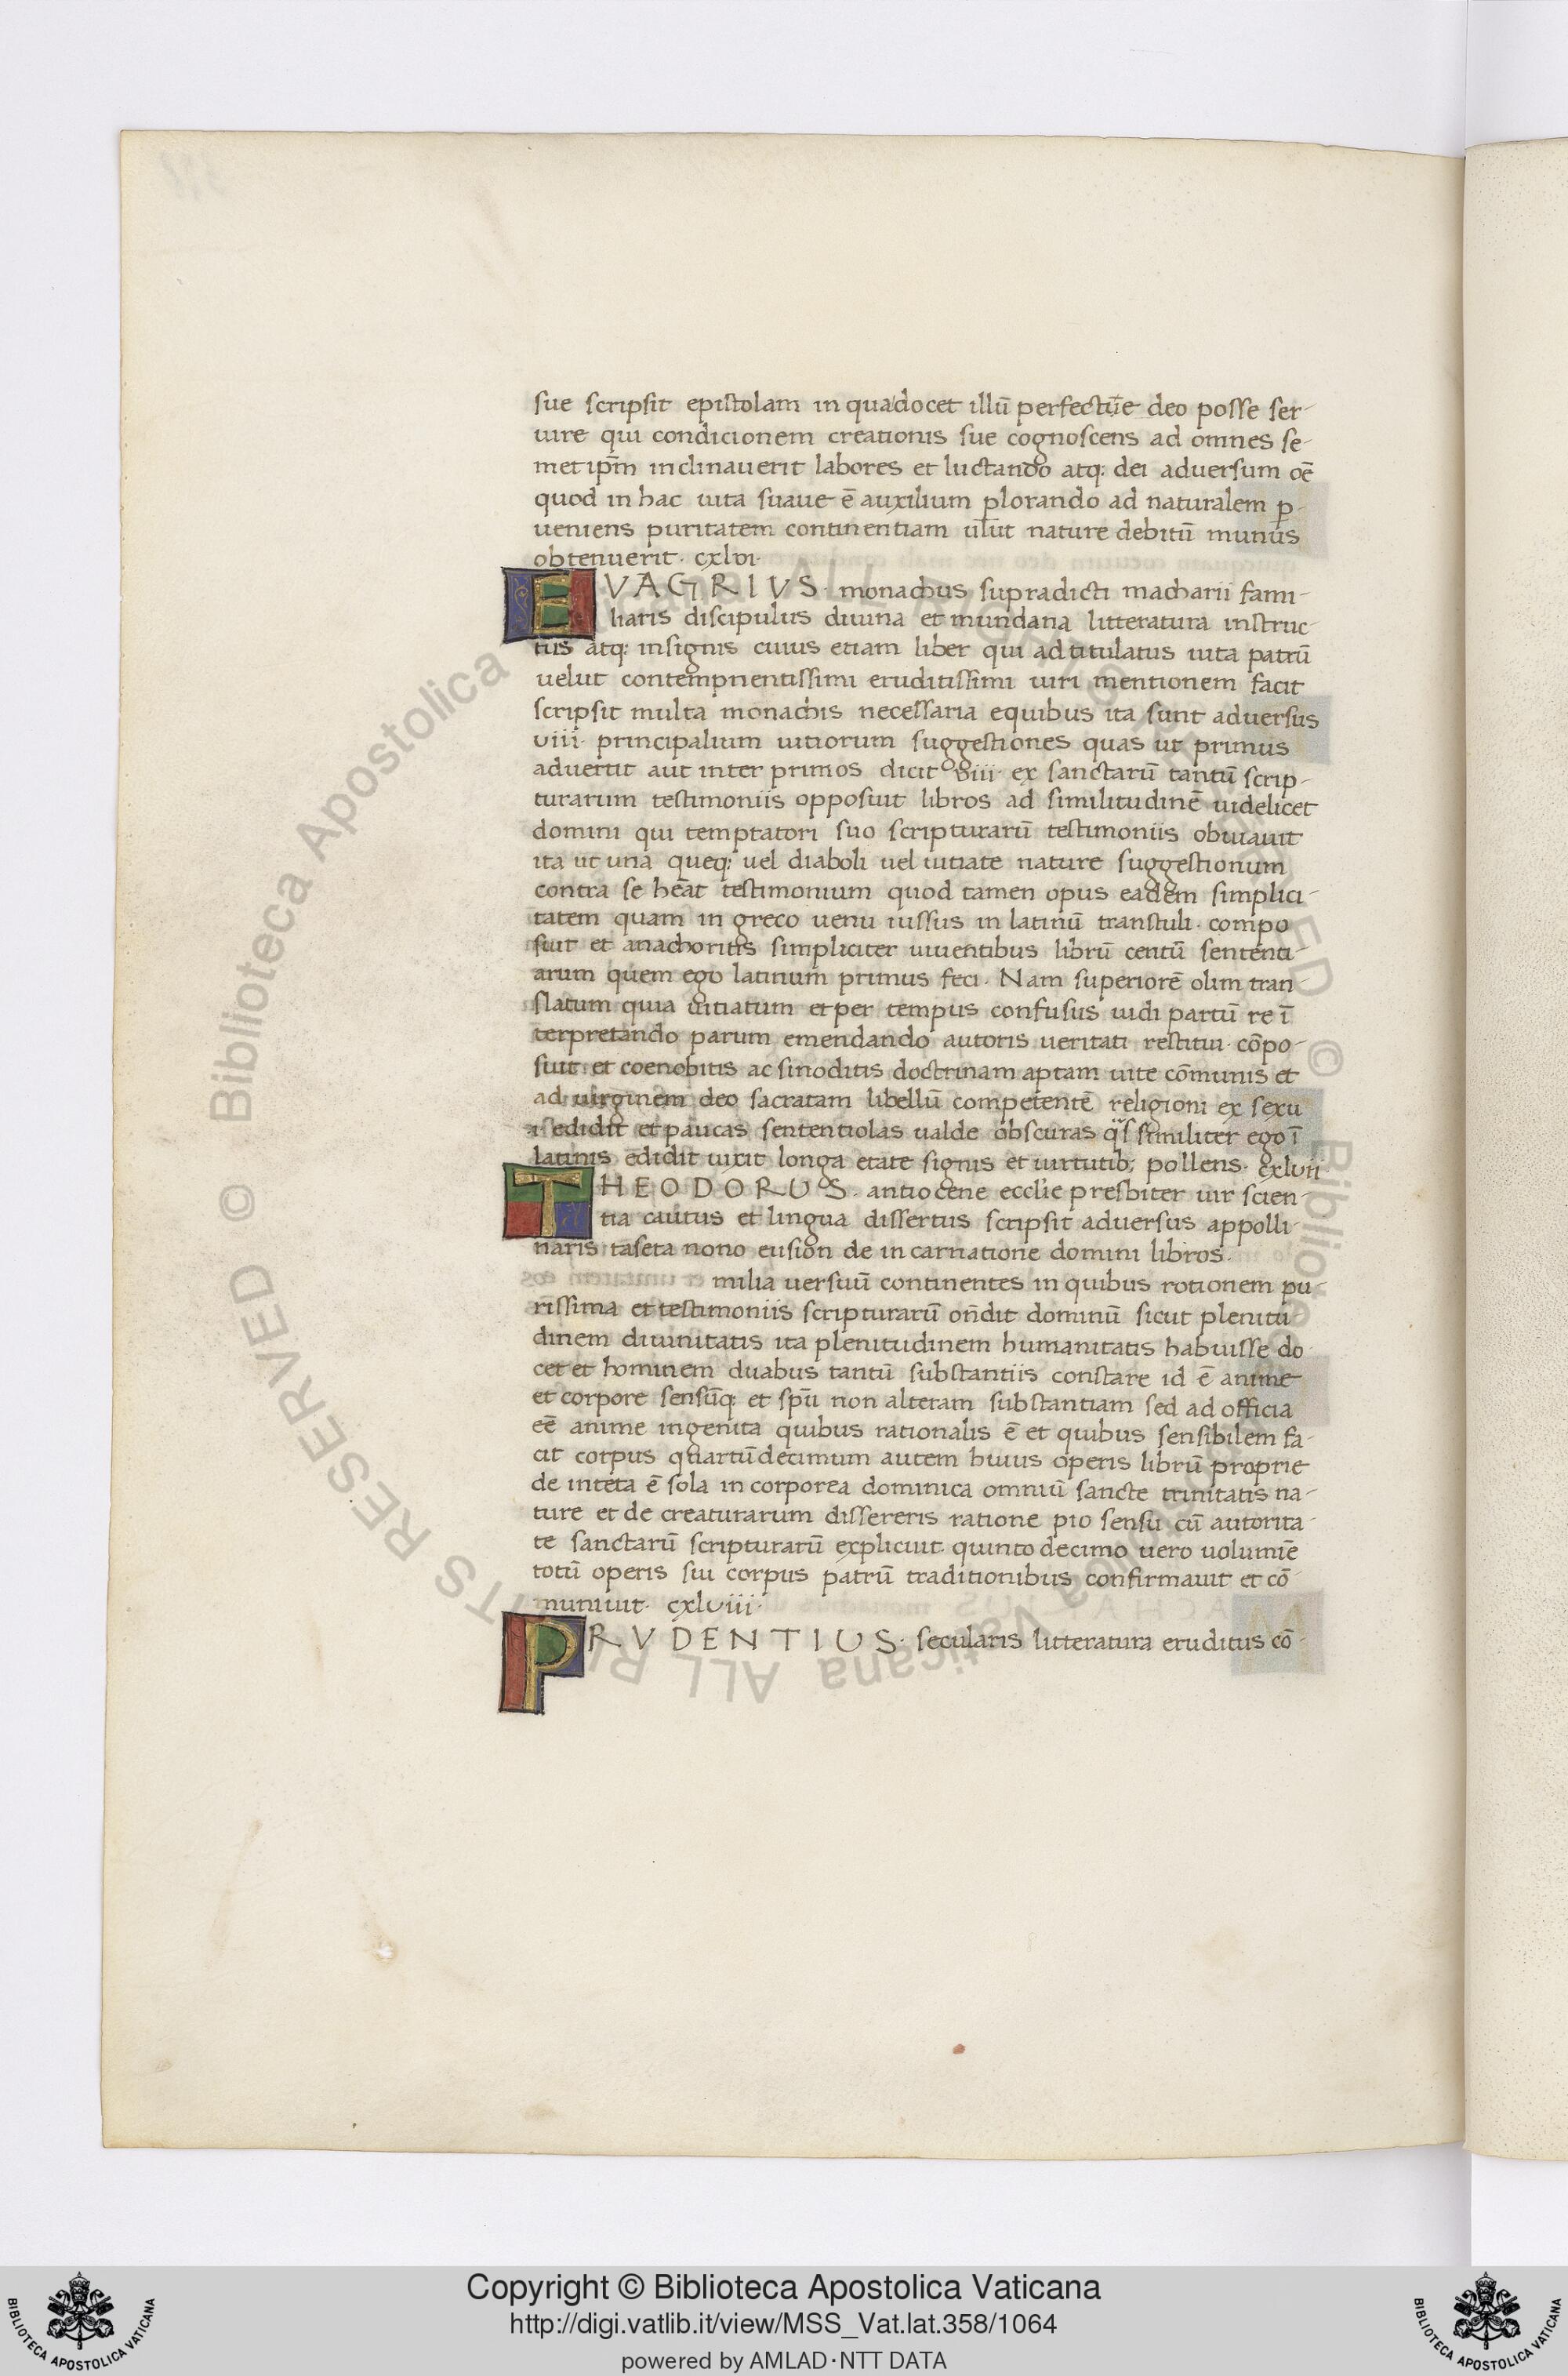 sue scripsit epistolam in qua docet illū perfectūe deo posse ser-
uire qui condicionem creationis sue cognoscens ad omnes se-
met ip̄m inclinauerit labores et luctando atq: dei aduersum oē
quod in hac uita suaue ē auxilium plorando ad naturalem p-
ueniens puritatem continentiam ul̄ut nature debitū munus
obtenuerit. cxlvi.
EVAGRIVS. monachus supradicti macharii fami-
liaris discipulus diuina et mundana litteratura instruc-
tus atq: insignis cuius etiam liber qui ad titulatus uita patrū
uelut contemprientissimi eruditissimi uiri mentionem facit
scripsit multa monachis necessaria equibus ita sunt aduersus
viii. principalium uitiorum suggestiones quas ut primus
aduertit aut inter primos dicit viii. ex sanctarū tantū scrip-
turarum testimoniis opposuit libros ad similitudinē uidelicet
domini qui temptatori suo scripturarū testimoniis obuiauit
ita ut una queq: uel diaboli uel uitiate nature suggestionum
contra se hēat testimonium quod tamen opus eadem simplici-
tatem quam in greco uenu iussus in latinū transtuli. compo
suit et anachoritis simpliciter uiuentibus librū centū sententi-
arum quem ego latinum primus feci. Nam superiorē olim tran-
slatum quia uitiatum et per tempus confusus uidi partū re ī
terpretando parum emendando autoris ueritati restitui. cōpo-
suit et coenobitis ac sinoditis doctrinam aptam uite cōmunis et
ad uirginem deo sacratam libellū competentē religioni ex sexu
i edidit et paucas sententiolas ualde obscuras q̄s similiter ego ī
latinis edidit uixit longa etate signis et uirtutib; pollens. cxlvii
THEODORUS. antiocene eccl̄ie presbiter uir scien-
tia cautus et lingua dissertus scripsit aduersus appolli-
naris taseta nono eusion de in carnatione domini libros.
milia uersuū continentes in quibus rotionem pu-
rissima et testimoniis scripturarū on̄dit dominū sicut plenitu-
dinem diuinitatis ita plenitudinem humanitatis habuisse do
cet et hominem duabus tantū substantiis constare id ē anime
et corpore sensūq: et sp̄u non alteram substantiam sed ad officia
eē anime ingenita quibus rationalis ē et quibus sensibilem fa-
cit corpus quartūdecimum autem huius operis librū proprie
de inteta ē sola in corporea dominica omniū sancte trinitatis na-
ture et de creaturarum dissereris ratione pio sensu cū autorita-
te sanctarū scripturarū explicuit. quinto decimo uero uolumīe
totū operis sui corpus patrū traditionibus confirmauit et cō-
muniuit. cxlviii.
PRVDENTIUS. secularis litteratura eruditus cō-
Copyright © Biblioteca Apostolica Vaticana
http://digi.vatlib.it/view/MSS_Vat.lat.358/1064
powered by AMLAD·NTT DATA
BIBLIOTECA APOSTOLICA VATICANA
BIBLIOTECA APOSTOLICA VATICANA
© Biblioteca Apostolica Vaticana ALL RIGHTS RESERVED